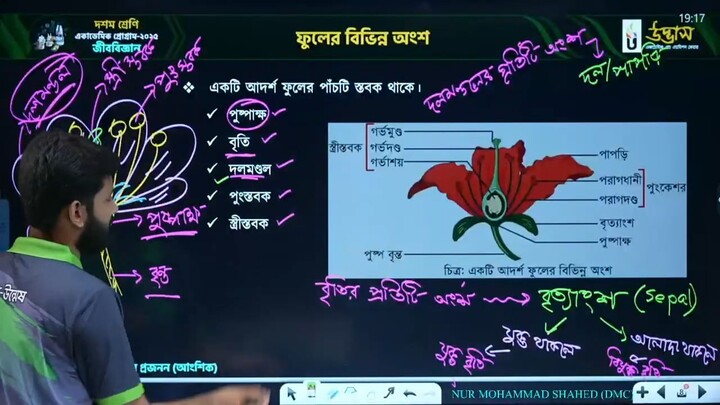 19:17
দশম শ্রেণি
একাডেমিক প্রোগ্রাম-২০২৫
জীববিজ্ঞান
ফুলের বিভিন্ন অংশ
উদ্ভাস
দলমন্ডল
স্ত্রী স্তবক
পুং স্তবক
দলমন্ডলের প্রতিটি অংশ
দল/পাপড়ি
❖ একটি আদর্শ ফুলের পাঁচটি স্তবক থাকে।
✓ পুষ্পাক্ষ ✓
✓ বৃতি ✓
✓ দলমণ্ডল ✓
✓ পুংস্তবক ✓
✓ স্ত্রীস্তবক ✓
পুষ্পাক্ষ
বৃন্ত
স্ত্রীস্তবক
গর্ভমুণ্ড
গর্ভদণ্ড
গর্ভাশয়
পাপড়ি
পরাগধানী
পরাগদণ্ড
পুংকেশর
বৃত্যাংশ
পুষ্পাক্ষ
পুষ্প বৃন্ত
চিত্র: একটি আদর্শ ফুলের বিভিন্ন অংশ
বৃতির প্রতিটি অংশ → বৃত্যাংশ (Sepal)
যুক্ত থাকলে
আলাদা থাকলে
যুক্ত বৃতি
বিযুক্ত বৃতি
-উন্মেষ
প্রজনন (আংশিক)
NUR MOHAMMAD SHAHED (DMC